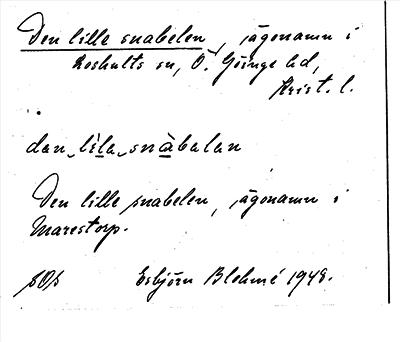 Den lille snabelen, ägonamn i
Loshults sn, Ö. Göinge hd,
Krist. l.
dan lila snabalan
Den lille snabelen, ägonamn i
Marestorp.
Esbjörn Blohmé 1948.